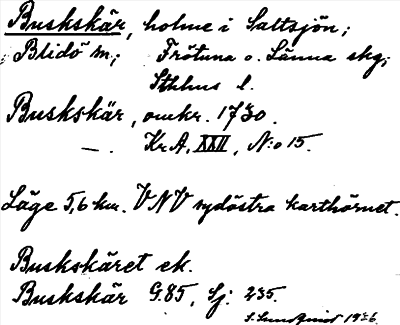 Buskskär, holme i Saltsjön;
Blidö sn; Frötuna o. Länna skg;
Sthlms l.
Buskskär, omkr. 1730.
—. Kr.A. XXII, N:o 15.
Läge 5,6 km. VNV sydöstra karthörnet.
Buskskäret ek.
Buskskär G.85, Sj: 235.
1926.